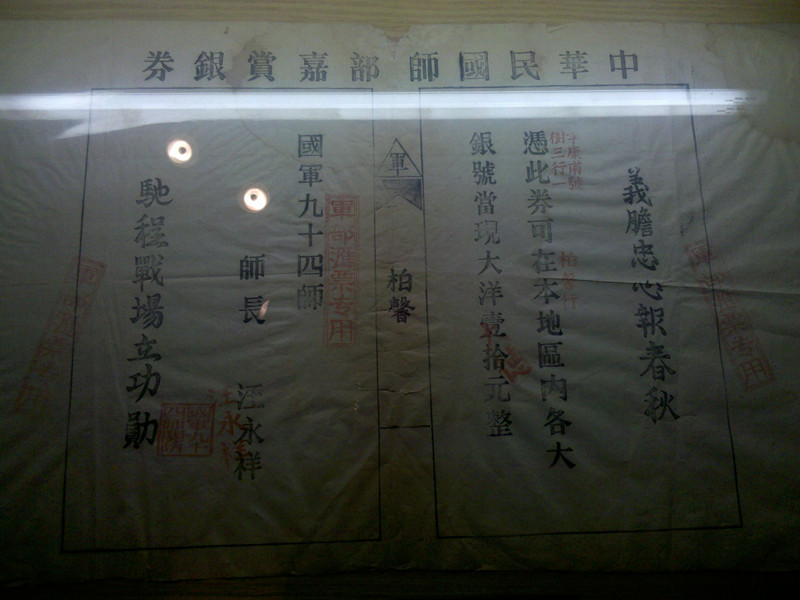 中華民國師部嘉賞銀券
義膽忠心報春秋
憑此券可在本地區內各大
銀號當現大洋壹拾元整
柏馨行
軍
柏馨
國軍九十四師
師長 汪永祥
馳程戰場立功勛
軍部滙票专用
汪永祥